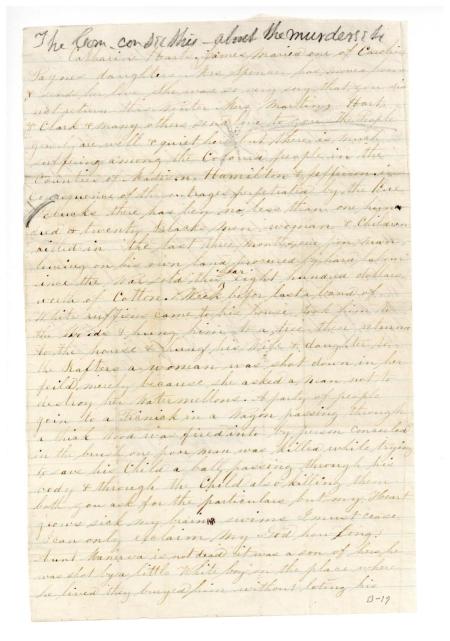 The Com. can see this - about the murders &c
Catharine Harts James maried one of Caroline
Saynes daughters Mrs Spencer has moved
& sends her love she was so very sorry that you did
not return this Winter Mrs Martling Harts
& Clark & many others send love to you the People
are well & quiet here but there is much
suffering among the Colored people in the
Counties of Madison, Hamilton & Jefferson in
consequence of the outrages perpetrated by the
Klucks there has ben no less than one hun
dred & twenty blacks men, woman & Children
killed in the last three months, one man
living on his own land procured by hard labor
since the war sold this year eight hundred dollars
worth of Cotton. Week befor last a band of
White ruffians came to his house, took him to
the Woods & hung him to a tree then returned
to the house & hung his wife & daughter to
the Rafters a woman was shot down in her
feild, merely because she asked a man not to
destroy her Water mellons. A party of people
goin to a Picnick in a Wagon passing through
a thick Wood was fired into by person concealed
in the brush one poor man was killed while trying
to save his Child a ball passing through his
body & through the Child also killing them
both you ask for the particulars but my Heart
grows sick my brain swims I must cease
I can only exclaim My God how long,
Aunt Manerva is not dead it was a son of hers, he
was shot by a little White boy on the place where
he lived they buryed him without leting his
B-19